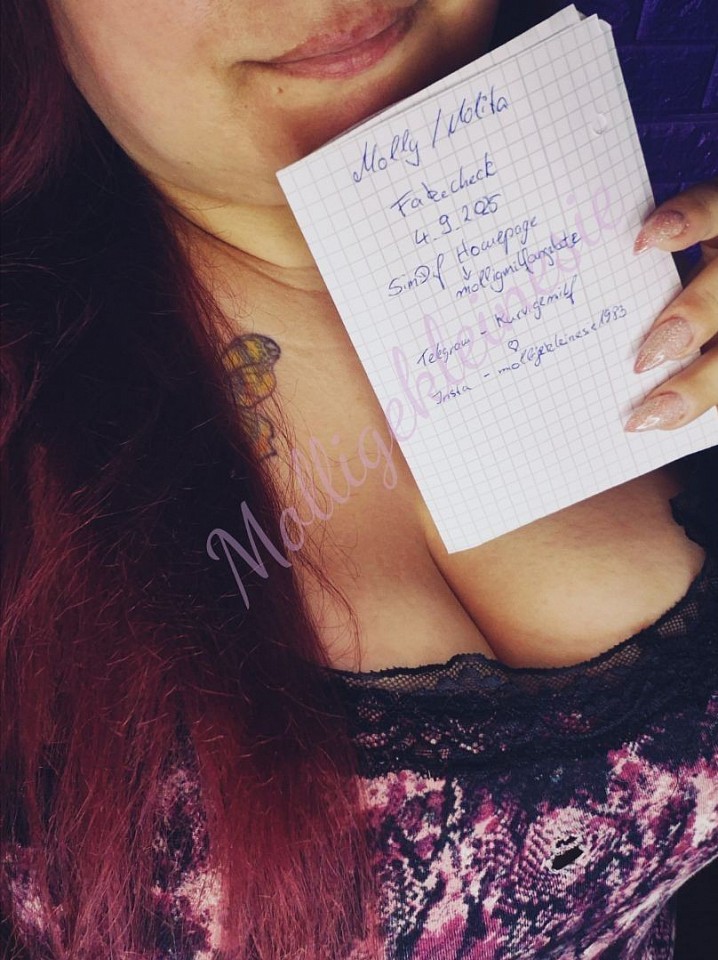 Molly / Molita
Fakecheck
4.9.2025
SimDif Homepage
molligmilfangebote
Telegram - Kurvigemilf
Insta - molligekleinese1983
Molligekleinesie